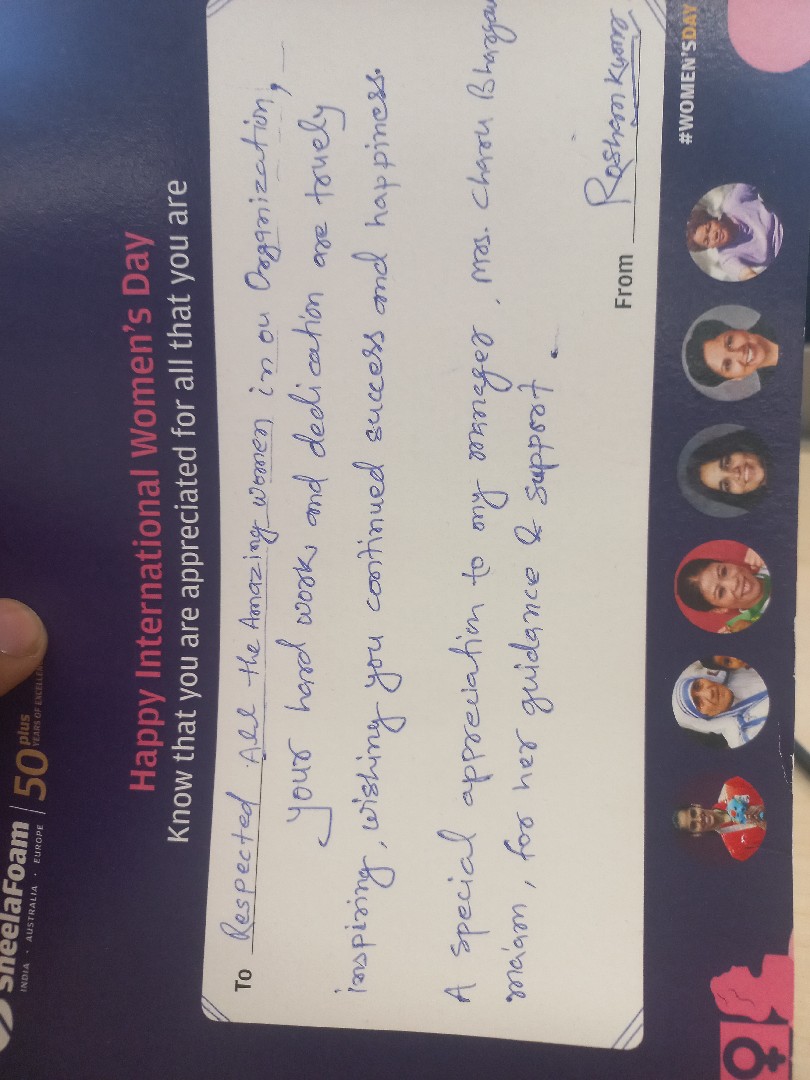 SheelaFoam
INDIA · AUSTRALIA · EUROPE
50 plus
YEARS OF EXCELLE
Happy International Women's Day
Know that you are appreciated for all that you are
To Respected All the Amazing women in ou Organization,
your hard work and dedication are truely
inspiring, wishing you continued success and happiness.
A special appreciation to my manager, Mrs. Charu Bhargav
ma'am, for her guidance & support.
From Roshan Kumar
#WOMEN'SDAY